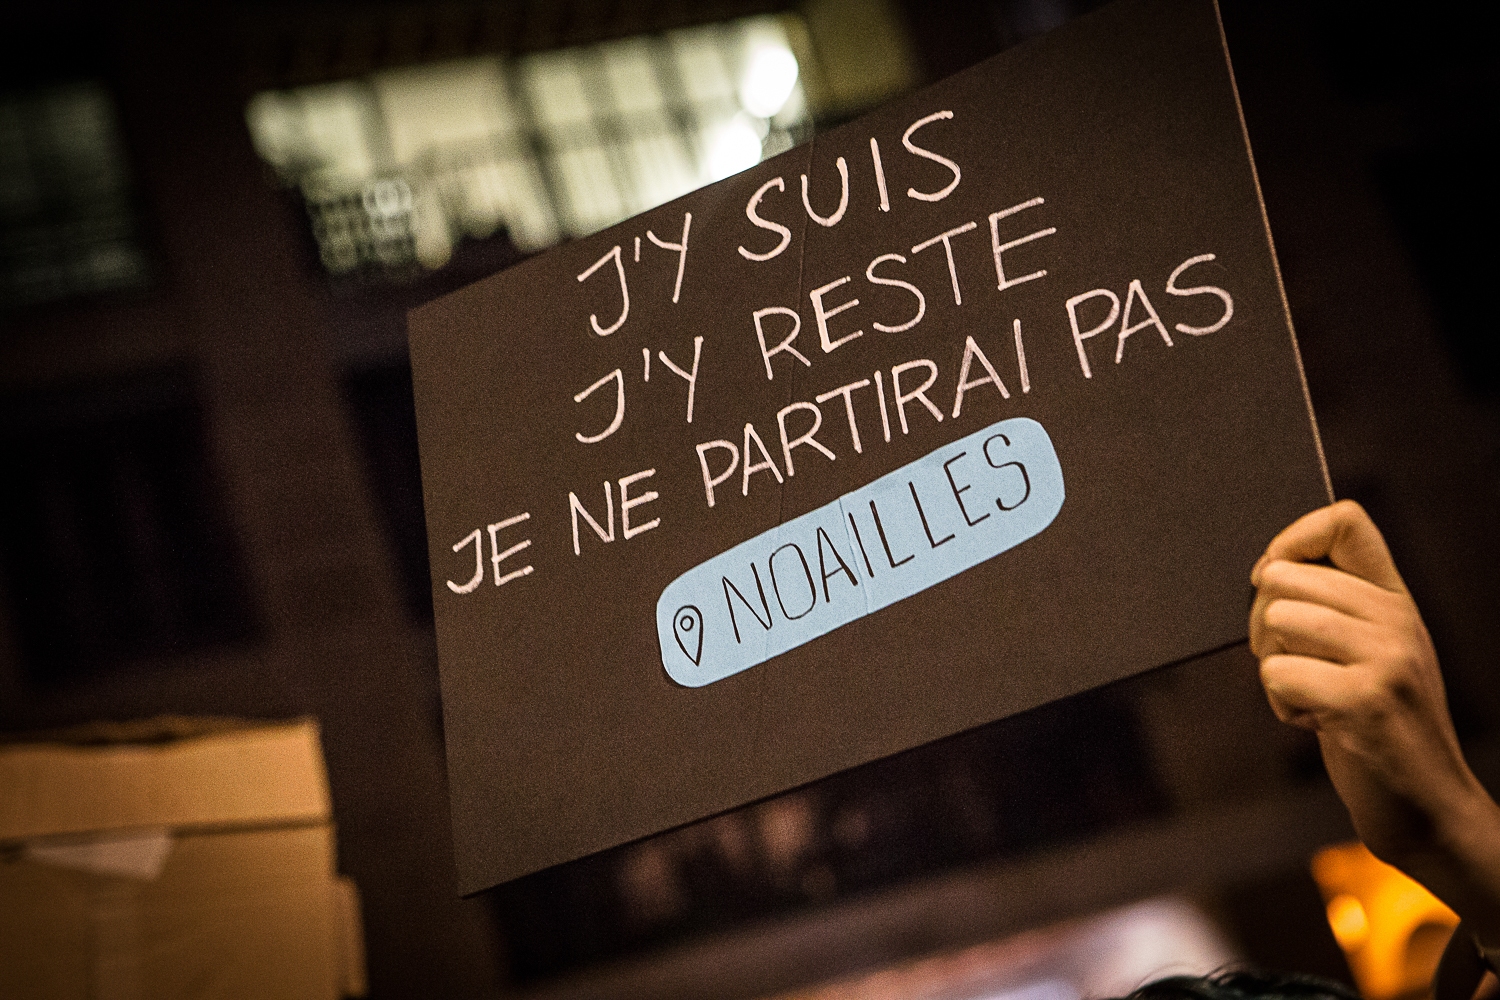 J'Y SUIS
J'Y RESTE
JE NE PARTIRAI PAS
NOAILLES